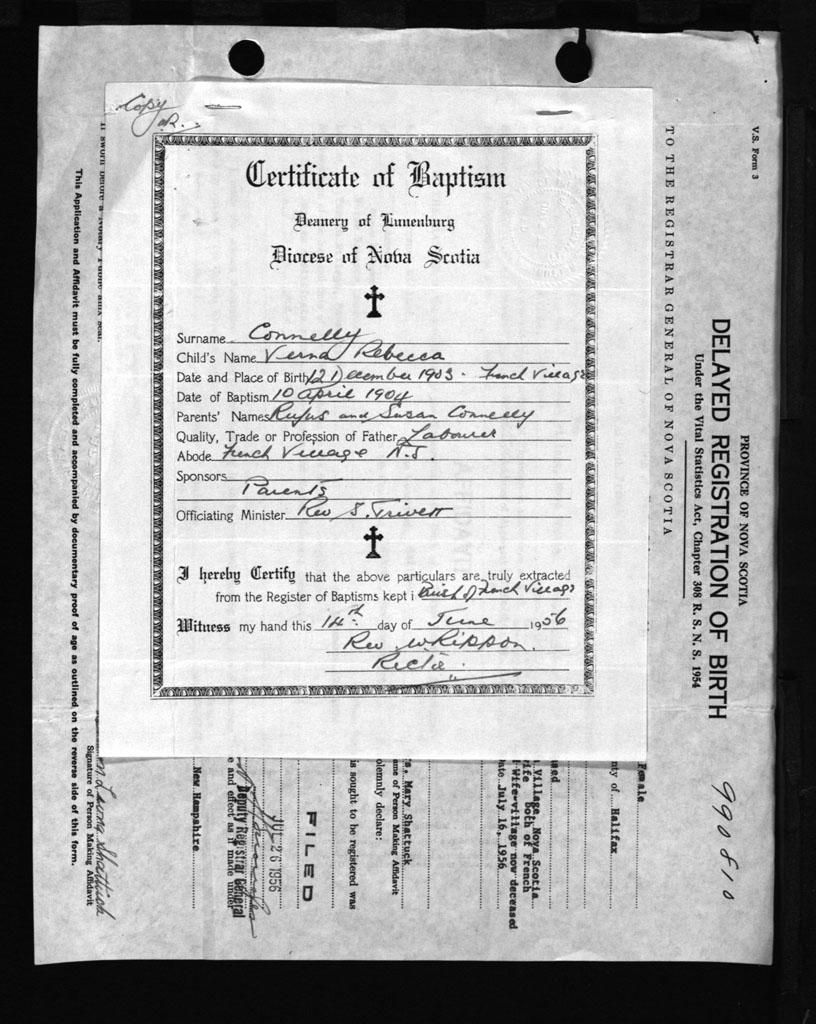 Copy
Certificate of Baptism
Deanery of Lunenburg
Diocese of Nova Scotia
Surname Connelly
Child's Name Verna Rebecca
Date and Place of Birth 12 December 1903 - French Village
Date of Baptism 10 April 1904
Parents' Names Rufus and Susan Connelly
Quality, Trade or Profession of Father Labourer
Abode French Village N.S.
Sponsors
Parents
Officiating Minister Rev S. Trivett
I hereby Certify that the above particulars are truly extracted
from the Register of Baptisms kept i French Village
Witness my hand this 14th day of June 1956
Rev W Rippon.
V.S. Form 3
PROVINCE OF NOVA SCOTIA
DELAYED REGISTRATION OF BIRTH
Under the Vital Statistics Act, Chapter 308 R. S. N. S. 1954
990810
TO THE REGISTRAR GENERAL OF NOVA SCOTIA
Female
ty of Halifax
sed
Village, Nova Scotia
ife both of French
Wife-village now deceased
ate July 16, 1956
s. Mary Shattuck
ame of Person Making Affidavit
olemnly declare:
is sought to be registered was
FILED
JUL 26 1956
Deputy Registrar General
e and effect as if made under
New Hampshire
Shattuck
Signature of Person Making Affidavit
This Application and Affidavit must be fully completed and accompanied by documentary proof of age as outlined on the reverse side of this form.